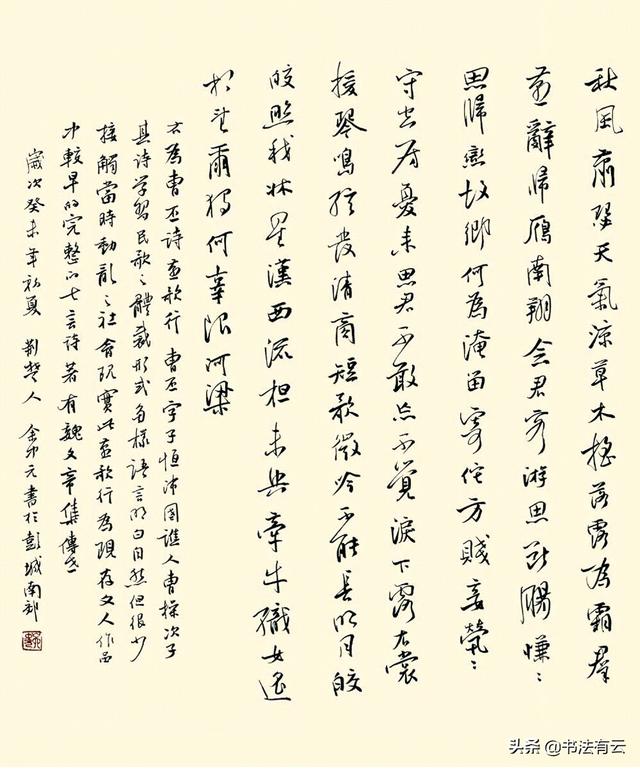 秋風蕭瑟天氣涼草木摇落露為霜羣
燕辭歸雁南翔念君客游思斷腸慊〻
思歸戀故鄉何為淹留寄佗方賤妾煢〻
守空房憂来思君不敢忘不覺淚下霑衣裳
援琴鳴弦發清商短歌微吟不能長明月皎
皎照我牀星漢西流夜未央牽牛織女遥
相望爾獨何辜限河梁
右為曹丕詩燕歌行 曹丕字子恒沛國譙人曹操次子
其詩學習民歌之體裁形式多樣語言明白自然但很少
接觸當時動亂之社會現實此燕歌行為現存文人作品
中較早的完整的七言詩著有魏文帝集傳世
歲次癸未年初夏 荆楚人 金印元書於彭城南郊
头条 @书法有云